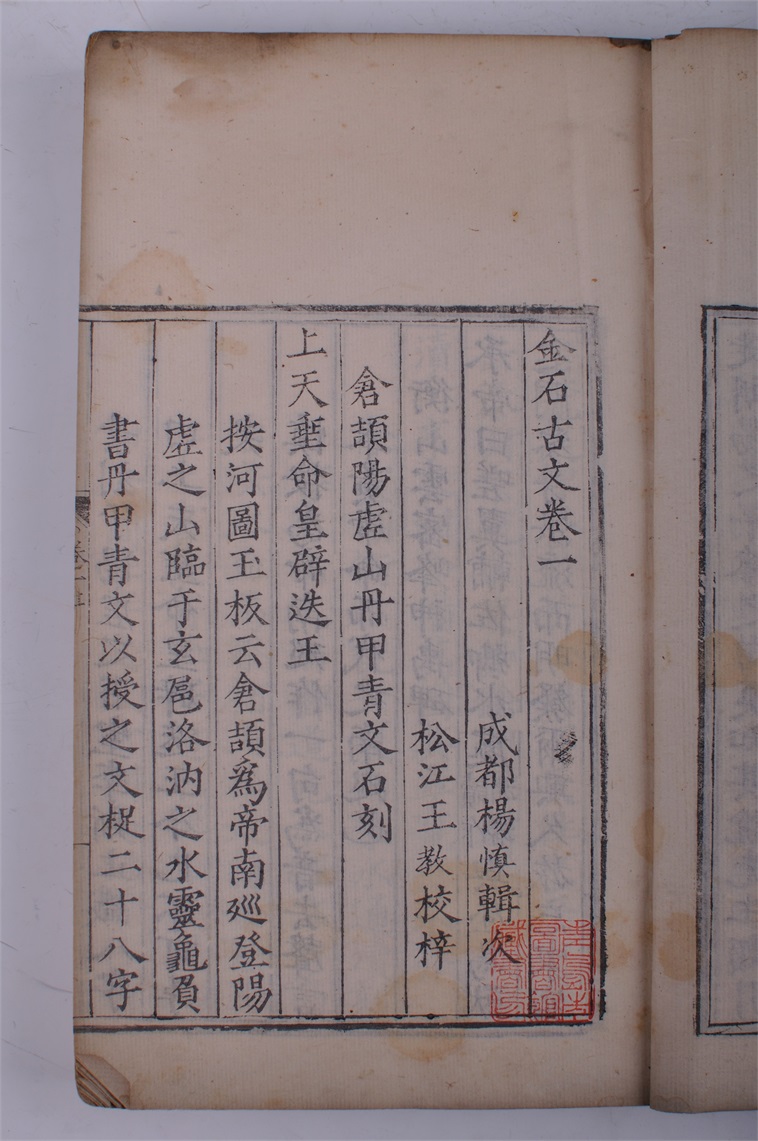 金石古文卷一
成都楊慎輯次
松江王教校梓
倉頡陽虗山丹甲青文石刻
上天埀命皇辟迭王
按河圖玉板云倉頡爲帝南廵登陽
虗之山臨于玄扈洛汭之水靈龜負
書丹甲青文以授之文捉二十八字